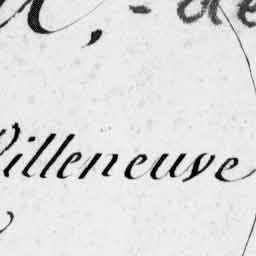 de
Villeneuve